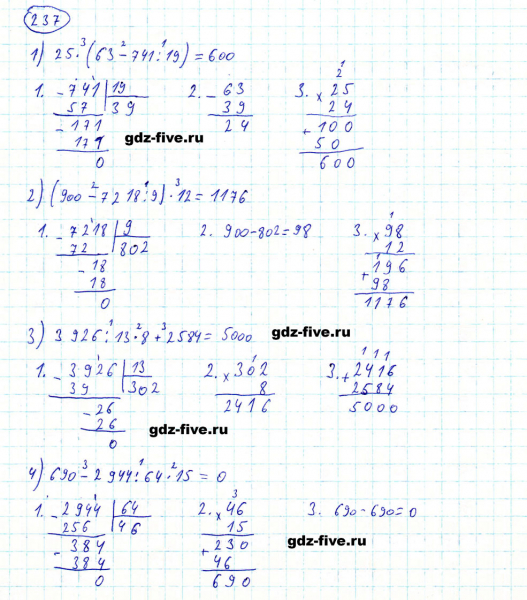 237
1) 25 · (63 - 741 : 19) = 600
1. - 741 | 19    2. - 63    3. × 25
57 | 39    39    24
- 171    24    + 100
171    50
0    600
gdz-five.ru
2) (900 - 7218 : 9) · 12 = 1176
1. - 7218 | 9    2. 900 - 802 = 98    3. × 98
72 | 802    12
- 18    + 196
18    98
0    1176
gdz-five.ru
3) 3926 : 13 · 8 + 2584 = 5000
gdz-five.ru
1. - 3926 | 13    2. × 302    3. + 2416
39 | 302    8    2584
- 26    2416    5000
26
0
gdz-five.ru
4) 690 - 2944 : 64 · 15 = 0
1. - 2944 | 64    2. × 46    3. 690 - 690 = 0
256 | 46    15
- 384    + 230
384    46
0    690
gdz-five.ru